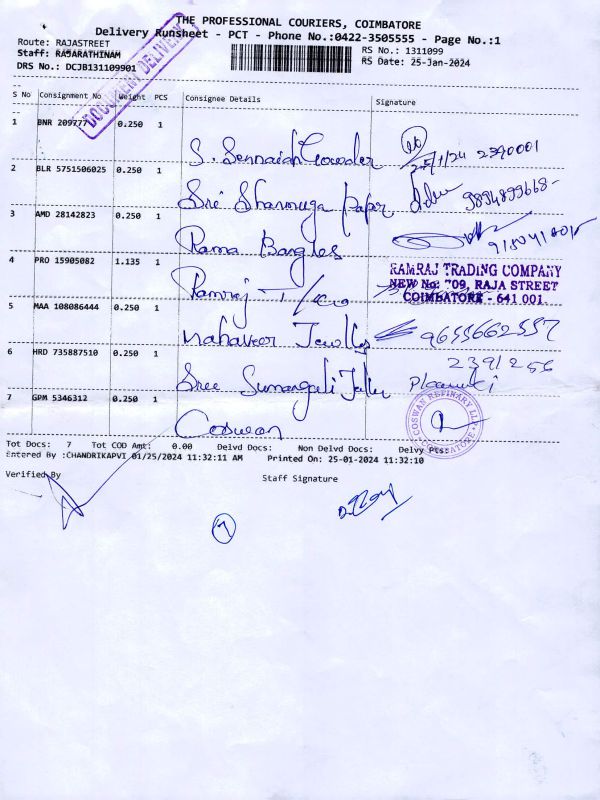 THE PROFESSIONAL COURIERS, COIMBATORE
Delivery Runsheet - PCT - Phone No.:0422-3505555 - Page No.:1
Route: RAJASTREET
RS No.: 1311099
Staff: RAJARATHINAM
RS Date: 25-Jan-2024
DRS No.: DCJB131109901
DOCUMENT DELIVERY
S No Consignment No Weight PCS Consignee Details Signature
1 BNR 209777 0.250 1 S. Sennaiah Gowder 25/1/24 2390001
2 BLR 5751506025 0.250 1 Sri Shanmuga Paper 9894899668-
3 AMD 28142823 0.250 1 Rama Bangles
4 PRO 15905082 1.135 1 Ramraj T/co
RAMRAJ TRADING COMPANY
NEW No: 709, RAJA STREET
COIMBATORE - 641 001.
5 MAA 108086444 0.250 1 Mahaveer Jewellery 9655662557
6 HRD 735887510 0.250 1 Sree Sumangali 2391256
7 GPM 5346312 0.250 1 Coswan
COSWAN REFINARY LLP
COIMBATORE
Tot Docs: 7 Tot COD Amt: 0.00 Delvd Docs: Non Delvd Docs: Delvy Pts:
Entered By :CHANDRIKAPVI 01/25/2024 11:32:11 AM Printed On: 25-01-2024 11:32:10
Verified By Staff Signature
7